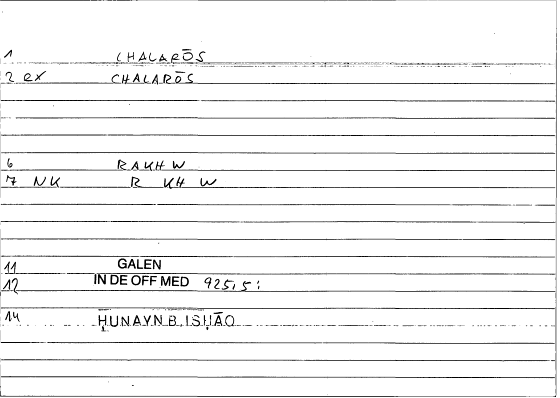 1 CHALARŌS
2 ex CHALARŌS
6 RAKHW
7 NK R KH W
11 GALEN
12 IN DE OFF MED 925,5:
14 ḤUNAYN B. ISḤĀQ